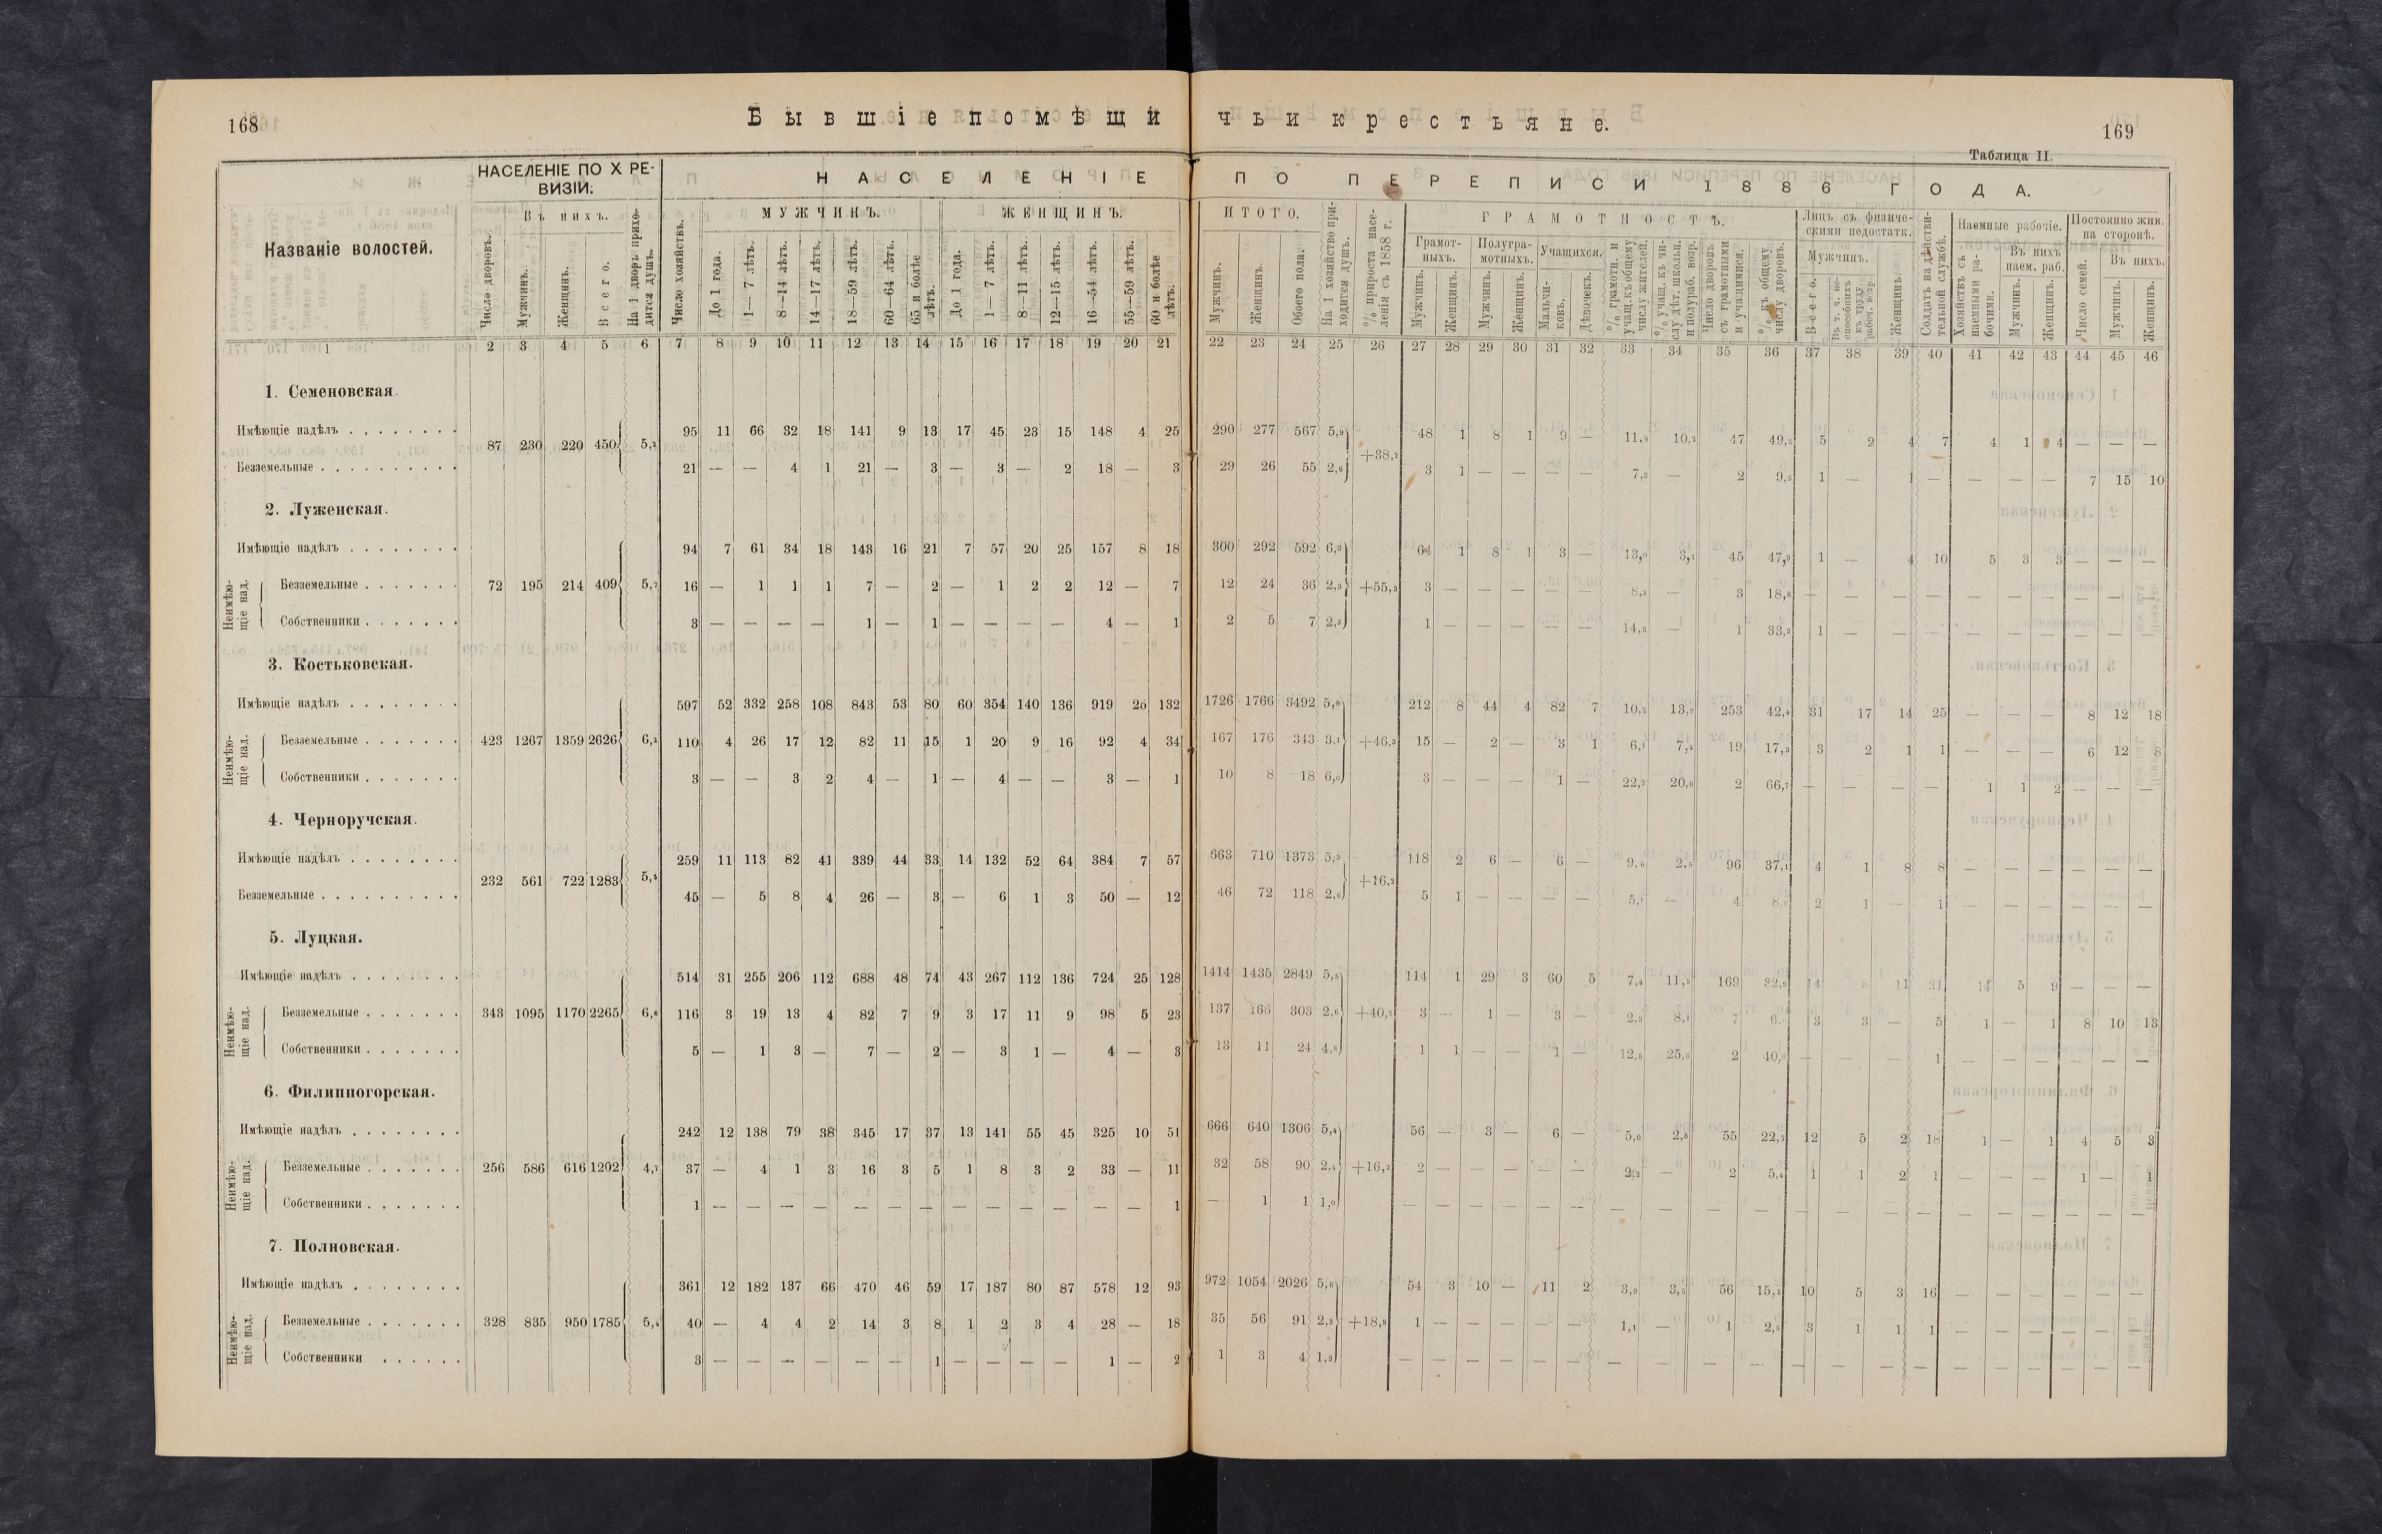 168
Бывшіе помѣщичьи крестьяне.
169
Таблица II.
Названіе волостей.
НАСЕЛЕНІЕ ПО X РЕ-
ВИЗІИ.
Число дворовъ.
Въ нихъ.
Мужчинъ.
Женщинъ.
Всего.
На 1 дворъ прихо-
дится душъ.
НАСЕЛЕНІЕ ПО ПЕРЕПИСИ 1886 ГОДА.
Число хозяйствъ.
МУЖЧИНЪ.
До 1 года.
1—7 лѣтъ.
8—14 лѣтъ.
14—17 лѣтъ.
18—59 лѣтъ.
60—64 лѣтъ.
65 и болѣе
лѣтъ.
ЖЕНЩИНЪ.
До 1 года.
1—7 лѣтъ.
8—11 лѣтъ.
12—15 лѣтъ.
16—54 лѣтъ.
55—59 лѣтъ.
60 и болѣе
лѣтъ.
ИТОГО.
Мужчинъ.
Женщинъ.
Обоего пола.
На 1 хозяйство при-
ходится душъ.
% прироста насе-
ленія съ 1858 г.
ГРАМОТНОСТЬ.
Грамот-
ныхъ.
Мужчинъ.
Женщинъ.
Полугра-
мотныхъ.
Мужчинъ.
Женщинъ.
Учащихся.
Мальчи-
ковъ.
Дѣвочекъ.
% грамотн. и
учащ. къ общему
числу жителей.
% учащ. къ чи-
слу дѣт. школьн.
и полураб. возр.
Число дворовъ
съ грамотными
и учащимися.
% къ общему
числу дворовъ.
Лицъ съ физиче-
скими недостатк.
Мужчинъ.
Всего.
Въ т. ч. не-
способныхъ
къ труду
рабоч. возр.
Женщинъ
Солдатъ на дѣйстви-
тельной службѣ.
Наемные рабочіе.
Хозяйствъ съ
наемными ра-
бочими.
Въ нихъ
наем. раб.
Мужчинъ.
Женщинъ.
Постоянно жив.
на сторонѣ.
Число семей.
Въ нихъ.
Мужчинъ.
Женщинъ.
1 2 3 4 5 6 7 8 9 10 11 12 13 14 15 16 17 18 19 20 21 22 23 24 25 26 27 28 29 30 31 32 33 34 35 36 37 38 39 40 41 42 43 44 45 46
1. Семеновская.
87 230 220 450 5,2 +38,2
Имѣющіе надѣлъ 95 11 66 32 18 141 9 13 17 45 23 15 148 4 25 290 277 567 5,9 48 1 8 1 9 — 11,8 10,2 47 49,5 5 2 4 7 4 1 4 — — —
Безземельные 21 — — 4 1 21 — 3 — 3 — 2 18 — 3 29 26 55 2,6 3 1 — — — — 7,3 — 2 9,5 1 — 1 — — — — 7 15 10
2. Луженская.
Имѣющіе надѣлъ 94 7 61 34 18 143 16 21 7 57 20 25 157 8 18 300 292 592 6,3 64 1 8 1 3 — 13,0 3,1 45 47,9 1 — 4 10 5 3 3 — — —
Неимѣю-
щіе над.
72 195 214 409 5,7 +55,3
Безземельные 16 — 1 1 1 7 — 2 — 1 2 2 12 — 7 12 24 36 2,3 3 — — — — — 8,3 — 3 18,8 — — — — — — — — — —
Собственники 3 — — — — 1 — 1 — — — — 4 — 1 2 5 7 2,3 1 — — — — — 14,3 — 1 33,3 1 — — — — — — — — —
3. Костьковская.
Имѣющіе надѣлъ 597 52 332 258 108 843 53 80 60 354 140 136 919 25 132 1726 1766 3492 5,8 212 8 44 4 82 7 10,2 13,9 253 42,4 31 17 14 25 — — — 8 12 18
Неимѣю-
щіе над.
423 1267 1359 2626 6,2 +46,3
Безземельные 110 4 26 17 12 82 11 15 1 20 9 16 92 4 34 167 176 343 3,1 15 — 2 — 3 1 6,1 7,4 19 17,3 3 2 1 1 — — — 6 12 8
Собственники 3 — — 3 2 4 — 1 — 4 — — 3 — 1 10 8 18 6,0 3 — — — 1 — 22,2 20,0 2 66,7 — — — — 1 1 2 — — —
4. Черноручская.
232 561 722 1283 5,5 +16,2
Имѣющіе надѣлъ 259 11 113 82 41 339 44 33 14 132 52 64 384 7 57 663 710 1373 5,3 118 2 6 — 6 — 9,6 2,5 96 37,1 4 1 8 8 — — — — — —
Безземельные 45 — 5 8 4 26 — 3 — 6 1 3 50 — 12 46 72 118 2,6 5 1 — — — — 5,1 — 4 8,9 2 1 — 1 — — — — — —
5. Луцкая.
Имѣющіе надѣлъ 514 31 255 206 112 688 48 74 43 267 112 136 724 25 128 1414 1435 2849 5,5 114 1 29 3 60 5 7,4 11,5 169 32,9 14 8 11 21 14 5 9 — — —
Неимѣю-
щіе над.
343 1095 1170 2265 6,6 +40,3
Безземельные 116 3 19 13 4 82 7 9 3 17 11 9 98 5 23 137 166 303 2,6 3 — 1 — 3 — 2,3 8,1 7 6, 3 3 — 5 1 — 1 8 10 13
Собственники 5 — 1 3 — 7 — 2 — 3 1 — 4 — 3 13 11 24 4,8 1 1 — — 1 — 12,5 25,0 2 40,0 — — — 1 — — — — — —
6. Филипногорская.
Имѣющіе надѣлъ 242 12 138 79 38 345 17 37 13 141 55 45 325 10 51 666 640 1306 5,4 56 — 3 — 6 — 5,0 2,8 55 22,7 12 5 2 18 1 — 1 4 5 3
Неимѣю-
щіе над.
256 586 616 1202 4,7 +16,2
Безземельные 37 — 4 1 3 16 3 5 1 8 3 2 33 — 11 32 58 90 2,4 2 — — — — — 2,2 — 2 5,4 1 1 2 1 — — — 1 — 1
Собственники 1 — — — — — — — — — — — — — 1 — 1 1 1,0 — — — — — — — — — — — — — — — — — — — —
7. Полновская.
Имѣющіе надѣлъ 361 12 182 137 66 470 46 59 17 187 80 87 578 12 93 972 1054 2026 5,6 54 3 10 — 11 2 3,9 3,5 56 15,5 10 5 3 16 — — — — — —
Неимѣю-
щіе над.
328 835 950 1785 5,4 +18,8
Безземельные 40 — 4 4 2 14 3 8 1 2 3 4 28 — 18 35 56 91 2,3 1 — — — — — 1,1 — 1 2,5 3 1 1 1 — — — — — —
Собственники 3 — — — — — — 1 — — — — 1 — 2 1 3 4 1,3 — — — — — — — — — — — — — — — — — — — —